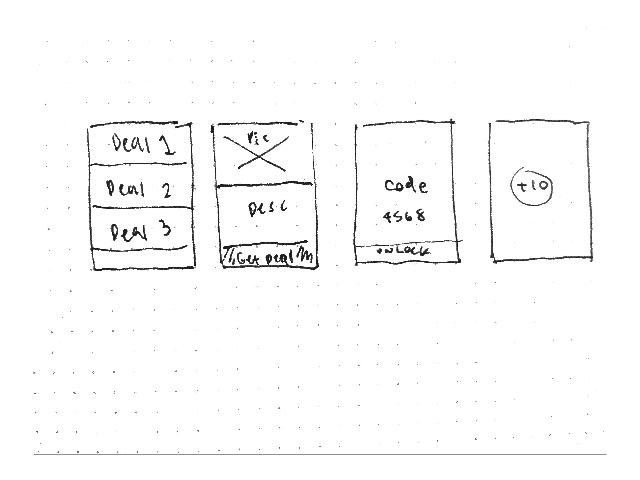 Deal 1
Deal 2
Deal 3
Pic
Desc
Get Deal
Code
4568
unLock
+10